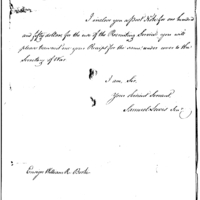 I inclose you a post Note for one hundred
and fifty dollars for the use of the Recruiting Service you will
please transmit me your Receipt for the same under cover to the
Secretary of War
I am Sir
Your obedient Servant
Samuel Lewis Senr.
Ensign William R. Boote